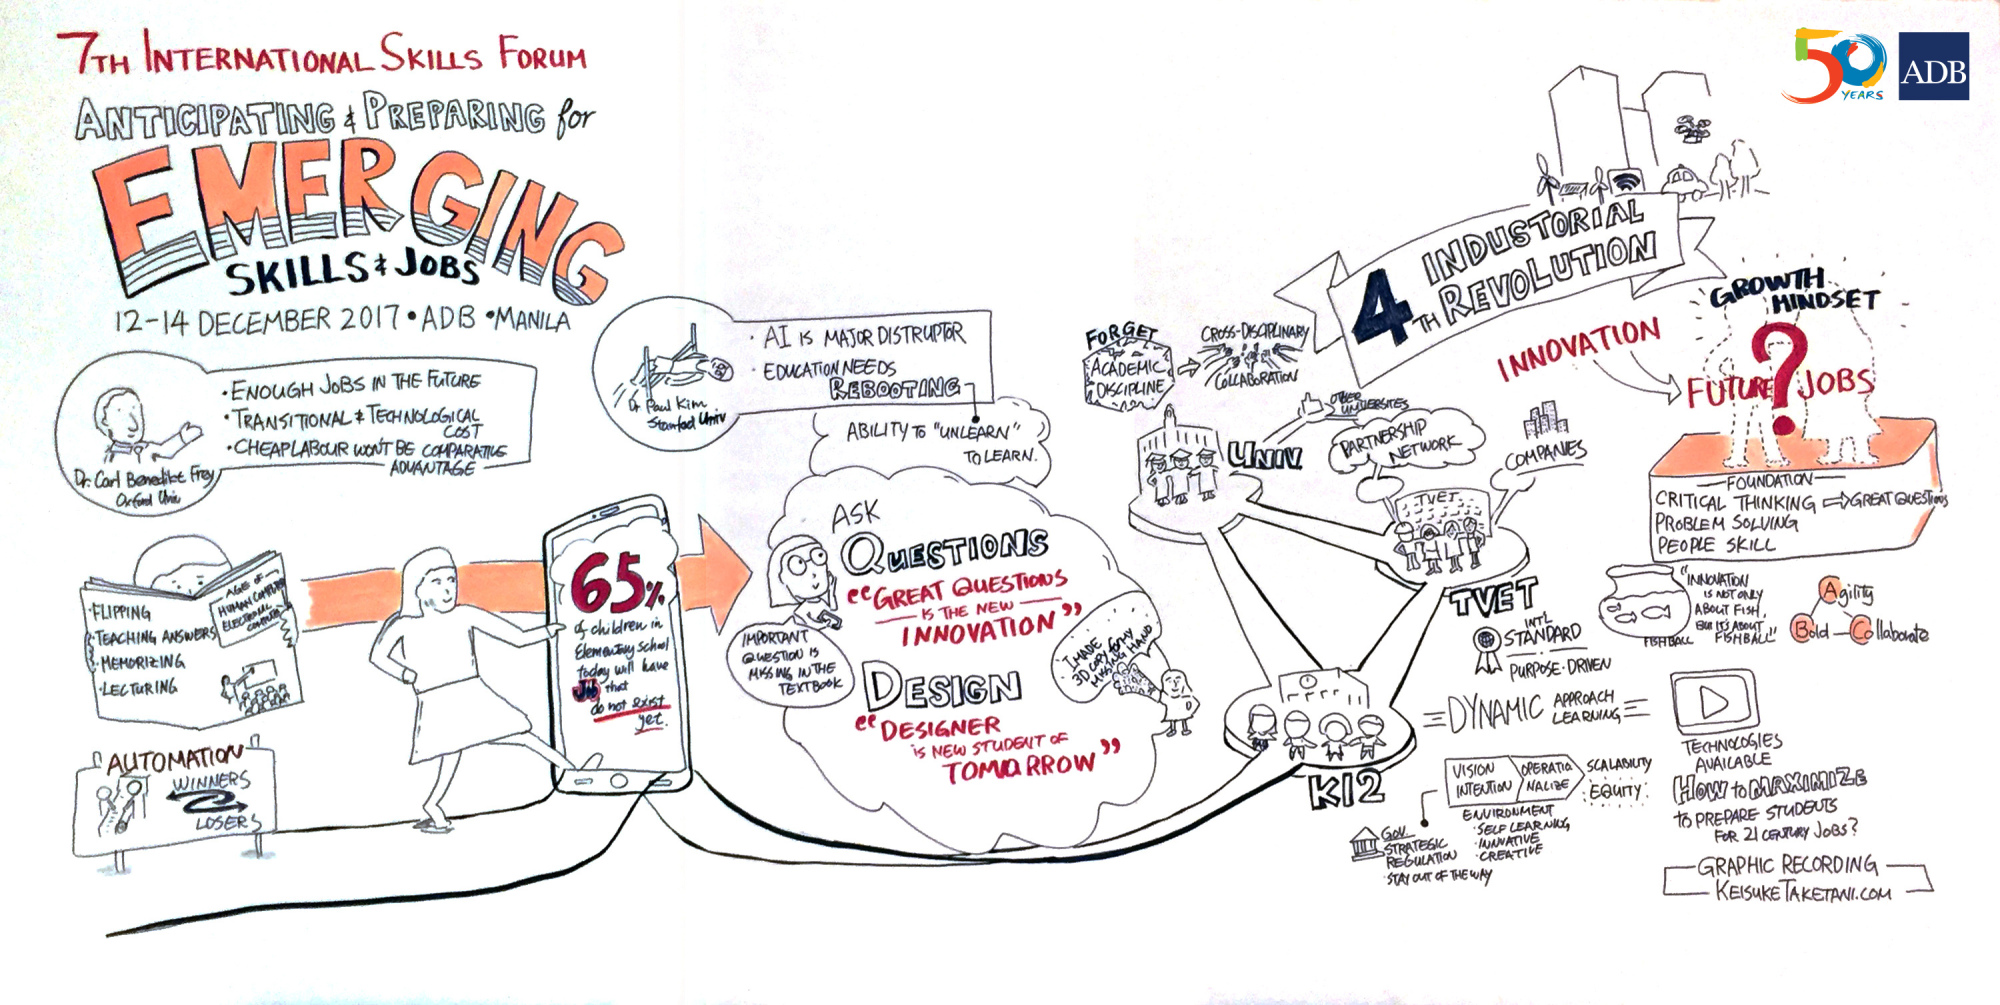 7TH INTERNATIONAL SKILLS FORUM
ANTICIPATING & PREPARING for
EMERGING
SKILLS & JOBS
12-14 DECEMBER 2017 • ADB • MANILA
50
YEARS
ADB
Dr. Carl Benedikt Frey
Oxford Univ
• ENOUGH JOBS IN THE FUTURE
• TRANSITIONAL & TECHNOLOGICAL
COST
• CHEAP LABOUR WON'T BE COMPARATIVE
ADVANTAGE
• FLIPPING
• TEACHING ANSWERS
• MEMORIZING
• LECTURING
AGE OF
HUMAN COMPUTER
ELECTRONIC
COMPUTER
AUTOMATION
WINNERS
LOSERS
65%
of children in
Elementary School
today will have
Job that
do not exist
yet.
Dr. Paul Kim
Stanford Univ
• AI IS MAJOR DISTRUPTOR
• EDUCATION NEEDS
REBOOTING
ABILITY TO "UNLEARN"
TO LEARN.
ASK
QUESTIONS
"GREAT QUESTIONS
IS THE NEW
INNOVATION"
IMPORTANT
QUESTION IS
MISSING IN THE
TEXTBOOK
DESIGN
"DESIGNER
IS NEW STUDENT OF
TOMORROW"
I MADE
3D COPY for MY
MISSING HAND
4TH INDUSTORIAL
REVOLUTION
FORGET
ACADEMIC
DISCIPLINE
CROSS-DISCIPLINARY
COLLABORATION
UNIV.
OTHER
UNIVERSITES
PARTNERSHIP
NETWORK
COMPANIES
TVET
TVET
INT'L
STANDARD
PURPOSE-DRIVEN
K12
DYNAMIC APPROACH
LEARNING
VISION
INTENTION
OPERATIO
NALIZE
SCALABILITY
EQUITY
ENVIRONMENT
• SELF LEARNING
• INNVATIVE
• CREATIVE
GOV.
STRATEGIC
REGULATION
• STAY OUT OF THE WAY
INNOVATION
GROWTH
MINDSET
FUTURE ? JOBS
FOUNDATION
CRITICAL THINKING ⇨ GREAT QUESTIONS
PROBLEM SOLVING
PEOPLE SKILL
FISHBALL
"INNOVATION
IS NOT ONLY
ABOUT FISH,
BUT IT'S ABOUT
FISHBALL"
Agility
Bold — Collaborate
TECHNOLOGIES
AVAILABLE
HOW to MAXIMIZE
to PREPARE STUDENTS
FOR 21 CENTURY JOBS?
GRAPHIC RECORDING
KEISUKETAKETANI.COM